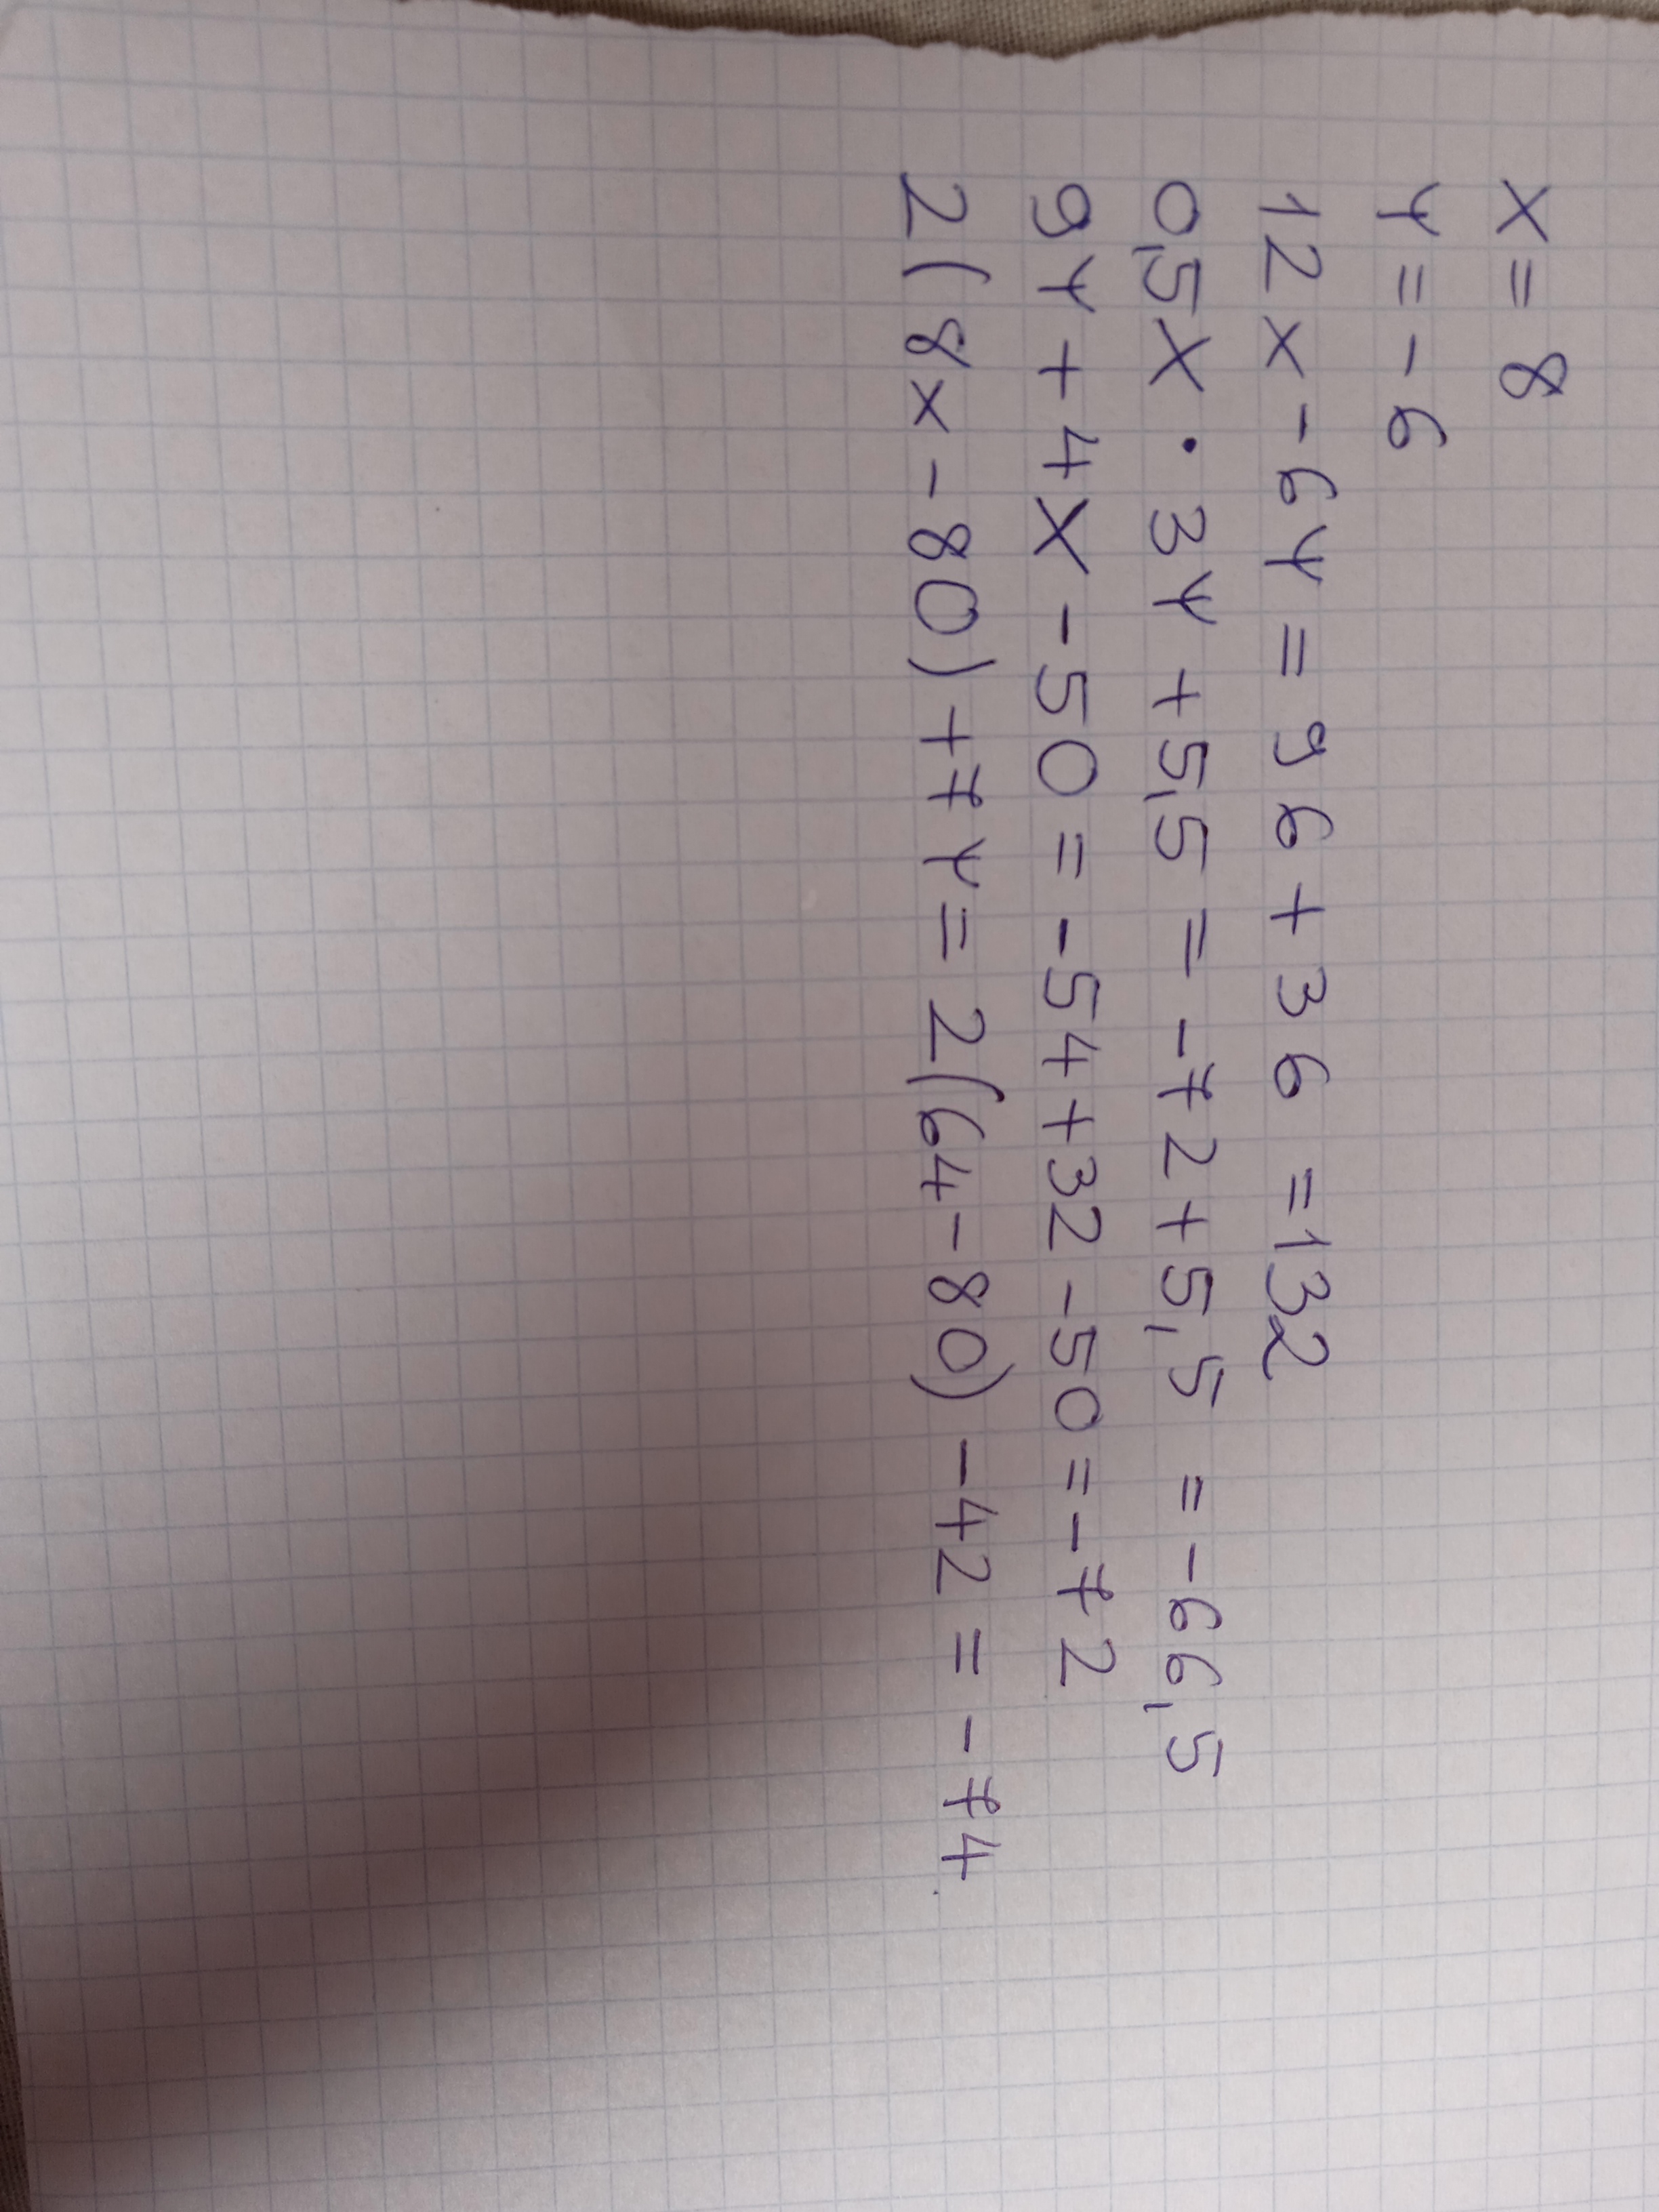 x = 8
y = - 6
12x - 6y = 96 + 36 = 132
0,5x · 3y + 5,5 = - 72 + 5,5 = - 66,5
9y + 4x - 50 = - 54 + 32 - 50 = - 72
2(8x - 80) + 7y = 2(64 - 80) - 42 = - 74